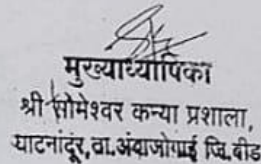 मुख्याध्यापिका
श्री सोमेश्वर कन्या प्रशाला,
घाटनांदूर, ता.अंबाजोगाई जि.बीड